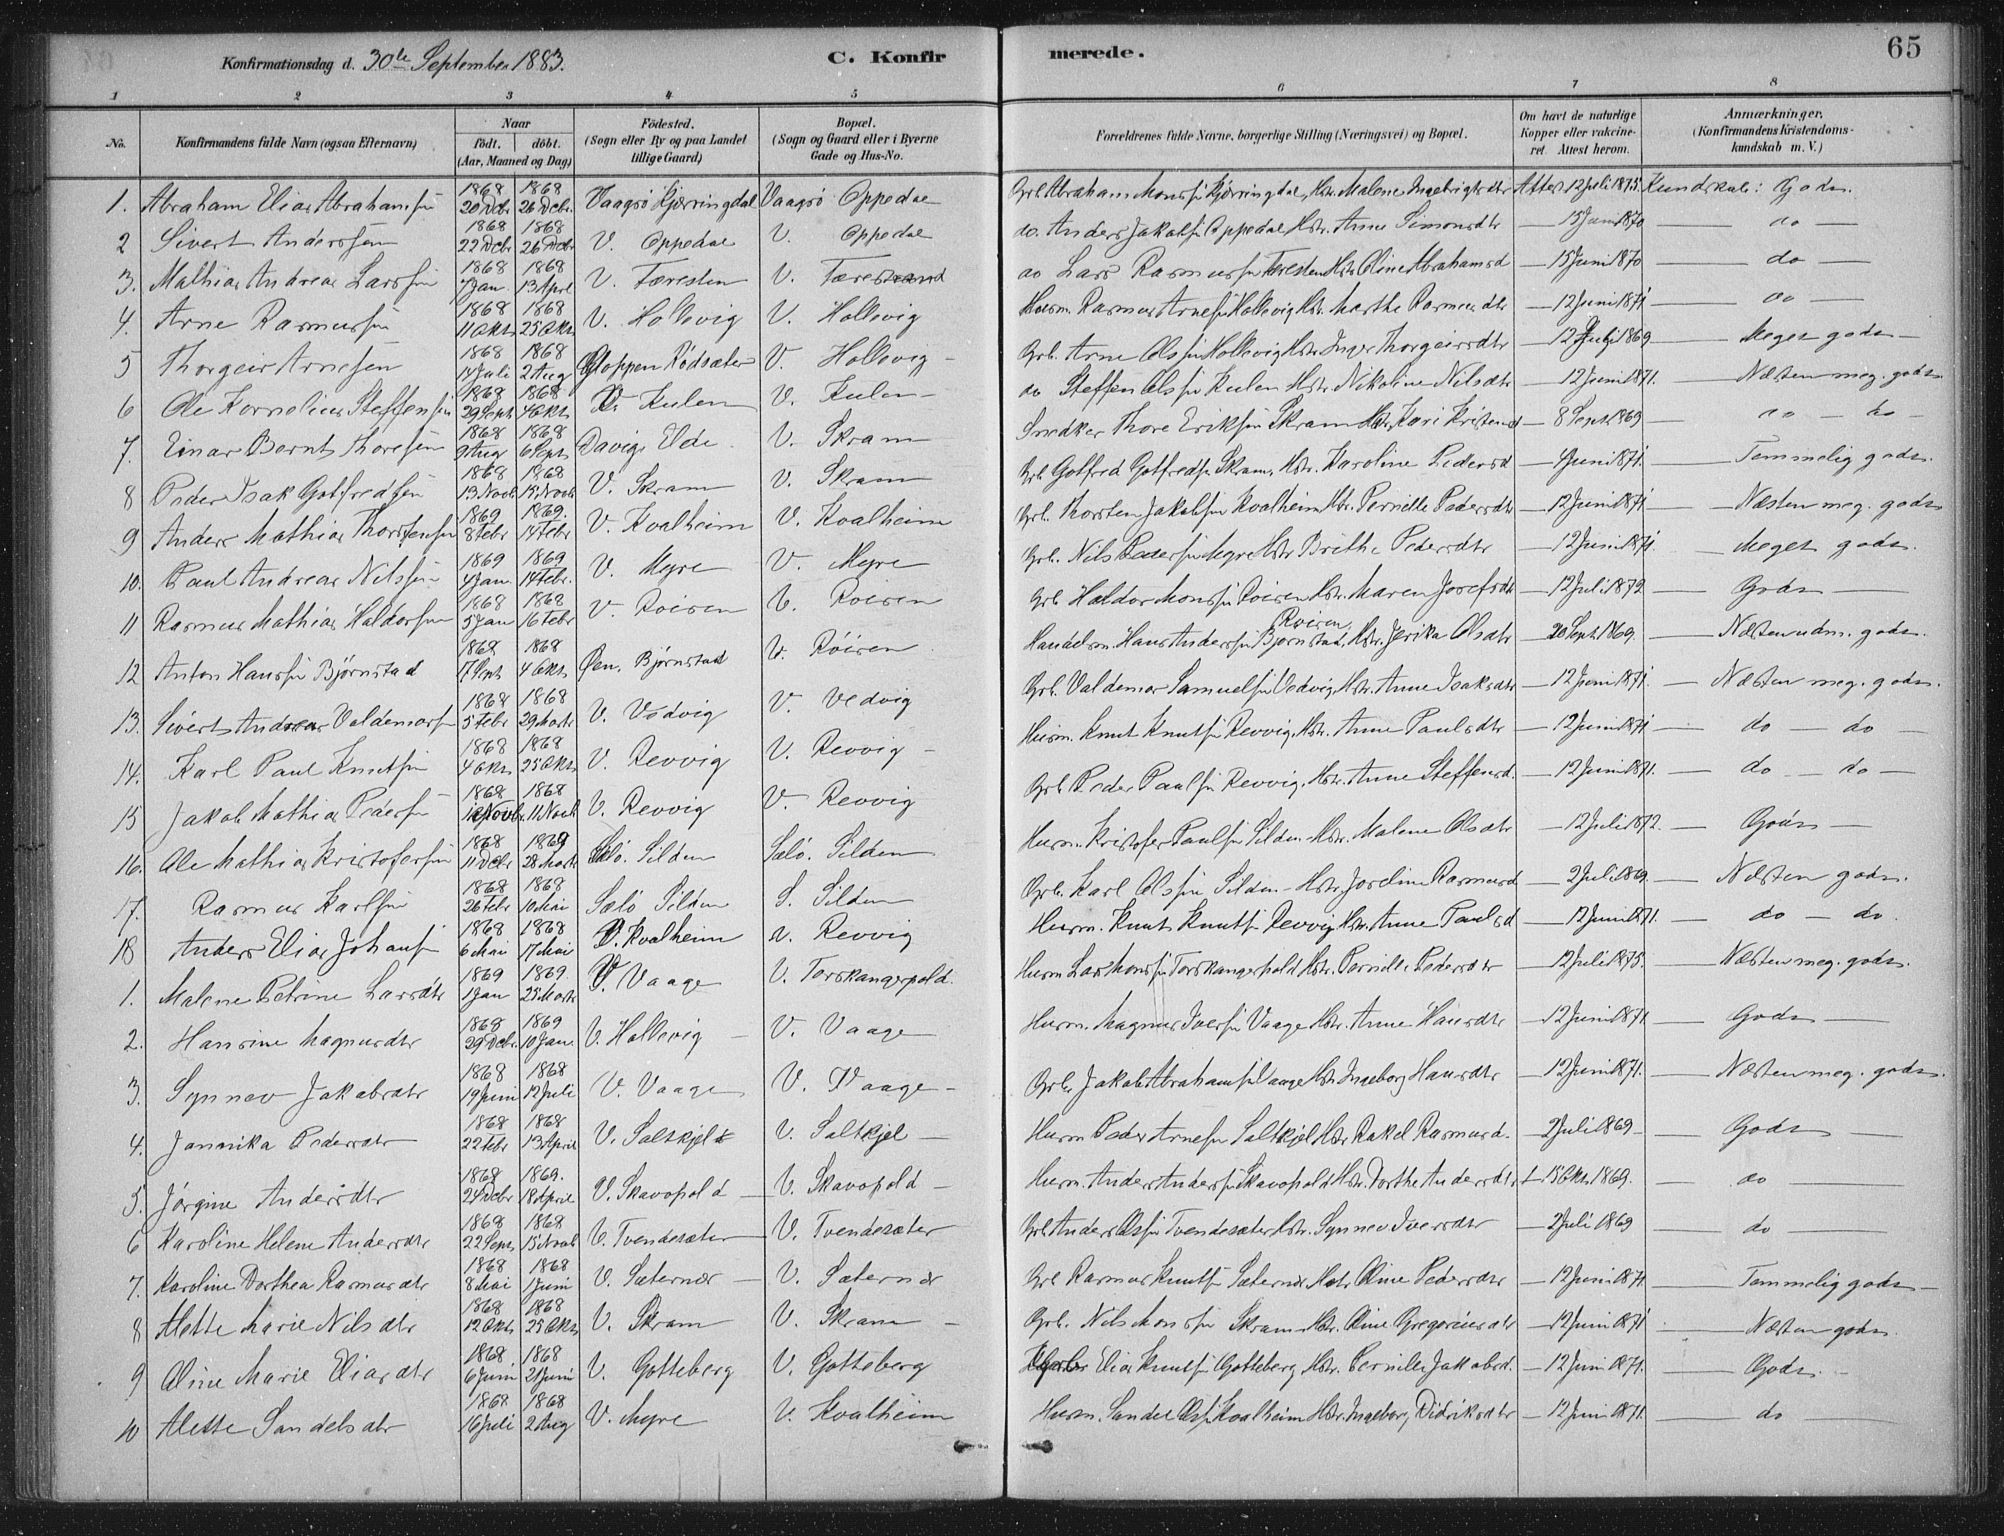 Konfirmationsdag d. 30te September 1883. C. Konfirmerede. 65
1 2 3 4 5 6 7 8
No. Konfirmandens fulde Navn (ogsaa Efternavn) Naar født. døbt. (Aar, Maaned og Dag) Fødested. (Sogn eller By og paa Landet tillige Gaard) Bopæl. (Sogn og Gaard eller i Byerne Gade og Hus-No. Forældrenes fulde Navne, borgerlige Stilling (Næringsvei) og Bopæl. Om havt de naturlige Kopper eller vakcineret. Attest herom. Anmærkninger. (Konfirmandens Kristendomskundskab m. V.)
1. Abraham Elias Abrahamsen 1868 20 Dcbr 1868 26 Dcbr. Vaagsö Hjörringdal Vaagsö Oppedal Grb. Abraham Monsen Hjörringdal, Hstr. Malene Ingebrigtsdtr Attest 12 Juli 1875. Kundskab: Gods.
2 Sivert Anderssen 1868 22 Dcbr 1868 26 Dcbr V. Oppedal V. Oppedal do. Anders Jakobsen Oppedal Hstr. Anne Simonsdtr — 15 Juni 1870 — do —
3. Mathias Andreas Larssen 1868 7 Jan. 1868 13 April V. Færesten V. Færestrand do Lars Rasmussen Færesten Hstr. Oline Abrahamsd — 15 Juni 1870 — do —
4. Arne Rasmussen 1868 11 Okt. 1868 25 Okt. V. Hollevig V. Hollevig Husm. Rasmus Arnesen Hollevig Hstr. Marthe Rasmusdtr — 12 Juni 1871 — do —
5 Thorgeir Arnesen 1868 14 Juli 1868 2 Aug Gloppen Rödsæter V. Hollevig — Grb. Arne Olsen Hollevig Hstr. Inger Thorgeirsdtr — 12 Juli 1869 — Meget gods —
6 Ole Kornelius Steffensen 1868 29 Sept 1868 4 Okt. V. Kulen V. Kulen — do Steffen Olsen Kulen Hstr. Nikoline Nilsdtr — 12 Juni 1871. — Næsten meg. gods.
7. Einar Bernt Thoresen 1868 9 Aug 1868 6 Sept Davig, Elde. V. Skram Snedker Thore Eriksen Skram Hstr. Kari Kristensd — 8 Sept. 1869 — do — do —
8 Peder Isak Gotfredsen 1868 13 Novb. 1868 15 Novb. V. Skram V. Skram Grb. Gotfred Gotfredsen Skram, Hstr. Karoline Pedersd — 4 Juni 1871. — Temmelig gods.
9 Anders Mathias Thorstensen 1869 8 Febr 1869. 14 Febr V. Kvalheim V. Kvalheim Grb. Thorsten Jakobsen Kvalheim Hstr. Pernille Pedersdtr — 12 Juni 1871 — Næsten meg. gods
10. Paul Andreas Nilssen 1869 4 Jan. 1869 14 Febr. V. Myre V. Myre Grb. Nils Pedersen Myre Hstr. Brithe Pedersdtr — 12 Juni 1871. — Meget gods.
11 Rasmus Mathias Haldorsen 1868 5 Jan 1868 16 Febr V. Röiren V. Röiren Grb Haldor Monsen Röiren Hstr. Maren Josefsdtr — 12 Juli 1872 — Gods —
12 Anton Hansen Bjørnstad 1868 17 Sept 1868 4 Okt. Øen, Bjørnstad V. Röiren Handelsm. Hans Andersen Bjørnstad, Röiren, Hstr. Jerika Olsdtr — 20 Sept. 1869. — Næsten udm. gods.
13. Sivert Andreas Valdemarsen 1868 5 Febr 1868 29 Marts V. Vedvig V. Vedvig Grb. Valdemar Samuelsen Vedvig Hstr. Anne Isaksdtr — 12 Juni 1871. — Næsten meg. gods.
14. Karl Paul Knutsen 1868 4 Okt. 1868 25 Okt. V. Revvig V. Revvig — Husm. Knut Knutsen Revvig, Hstr. Anne Paulsdtr — 12 Juni 1871 — do — do —
15 Jakob Mathias Pedersen 1868 Novb. 1868 11 Novb V. Revvig V. Revvig Grb. Peder Paulsen Revvig, Hstr. Anne Steffensd. — 12 Juni 1871. — do — do —
16. Ole Mathias Kristofersen 1868 11 Dcbr 1869 28 Marts Selö. Silden Selö. Silden Husm. Kristofer Paulsen Silden Hstr. Malene Olsdtr — 12 Juli 1872. — Gods —
17. Rasmus Karlsen 1868 26 Febr 1868 10 Mai Selö Silden S. Silden Grb. Karl Olsen Silden Hstr. Jordine Rasmusd — 2 Juli 1869. — Næsten gods.
18 Anders Elias Johansen 1868 6 Mai 1868 17 Mai V. Kvalheim V. Revvig Husm. Knut Knutsen Revvig Hstr. Anne Paulsd — 12 Juni 1871. — do — do.
1. Malene Petrine Larsdtr 1869 1 Jan 1869. 25 Marts V. Vaage V. Torskangerpold. Husm Lars Monsen Torskangerpold Hstr. Pernille Pedersdtr — 12 Juli 1875. — Næsten meg. gods.
2. Hansine Magnusdtr 1868 29 Dcbr. 1869 10 Jan. V. Hollevig — V. Vaage — Husm. Magnus Iversen Vaage Hstr. Anne Hansdtr — 12 Juni 1871 — Gods —
3. Synnev Jakobsdtr 1868 19 Juni 1868 12 Juli V. Vaage V. Vaage — Grb. Jakob Abrahamsen Vaage Hstr Ingeborg Hansdtr — 12 Juni 1871. — Næsten meg. gods.
4. Jannika Pedersdtr 1868 22 Febr 1868 13 April V. Saltkjel V. Saltkjel — Husm Peder Arnesen Saltkjel Hstr Rakel Rasmusd. — 2 Juli 1869 — Gods —
5. Jørgine Andersdtr 1868 24 Dcbr 1869. 18 April V. Skavopold — V. Skavopold — Husm. Anders Andersen Skavopold Hstr. Dorthe Andersdtr — 15 Okt. 1869. — do —
6 Karoline Helene Andersdtr 1868 22 Sept. 1868 15 Novb V. Tvendesæter — V. Tvendesæter Grb. Anders Olsen Tvendesæter Hstr. Synnev Iversdtr — 2 Juli 1869 — do —
7. Karoline Dorthea Rasmusdtr 1868 8 Mai 1868 1 Juni V. Sæternær — V. Sæternær Grb Rasmus Knutsen Sæternær Hstr. Oline Pedersdtr — 12 Juni 1871 — Temmelig gods —
8 Alette Marie Nilsdtr 1868 12 Okt. 1868 25 Okt V. Skram V. Skram — Grb. Nils Monssen Skram Hstr. Oline Gregoriusdtr — 12 Juni 1871 — Næsten gods.
9 Oline Marie Eliasdtr 1868 6 Juni 1868 21 Juni V. Gotteberg V. Gotteberg Elias Knutsen Gotteberg Hstr. Pernille Jakobsd. — 12 Juni 1871. — Gods. —
10 Alette Sandelsdtr 1868 16 Juli 1868 2 Aug V. Myre V. Kvalheim Husm. Sandel Olsen Kvalheim Hstr. Ingeborg Didriksdtr — 12 Juni 1871. — do